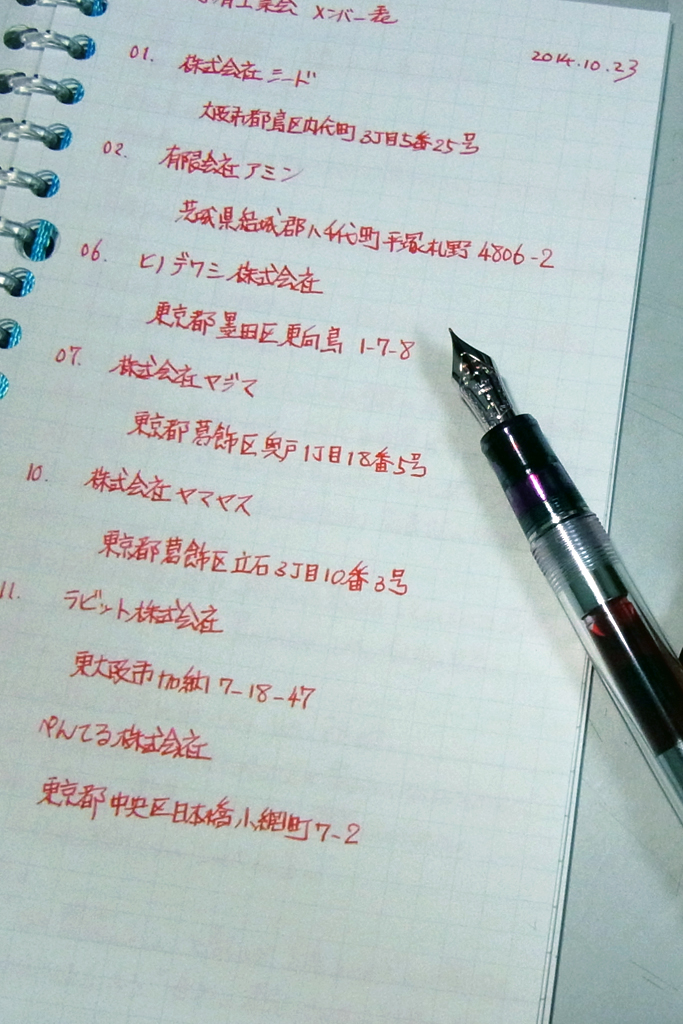 工業会 メンバー表
2014.10.23
01. 株式会社シード
大阪市都島区内代町3丁目5番25号
02. 有限会社アミン
茨城県結城郡八千代町平塚札野4806-2
06. ヒノデワシ株式会社
東京都墨田区東向島 1-7-8
07. 株式会社ヤジマ
東京都葛飾区奥戸1丁目18番5号
10. 株式会社ヤマヤス
東京都葛飾区立石3丁目10番3号
11. ラビット株式会社
東大阪市加納7-18-47
ぺんてる株式会社
東京都中央区日本橋小網町7-2